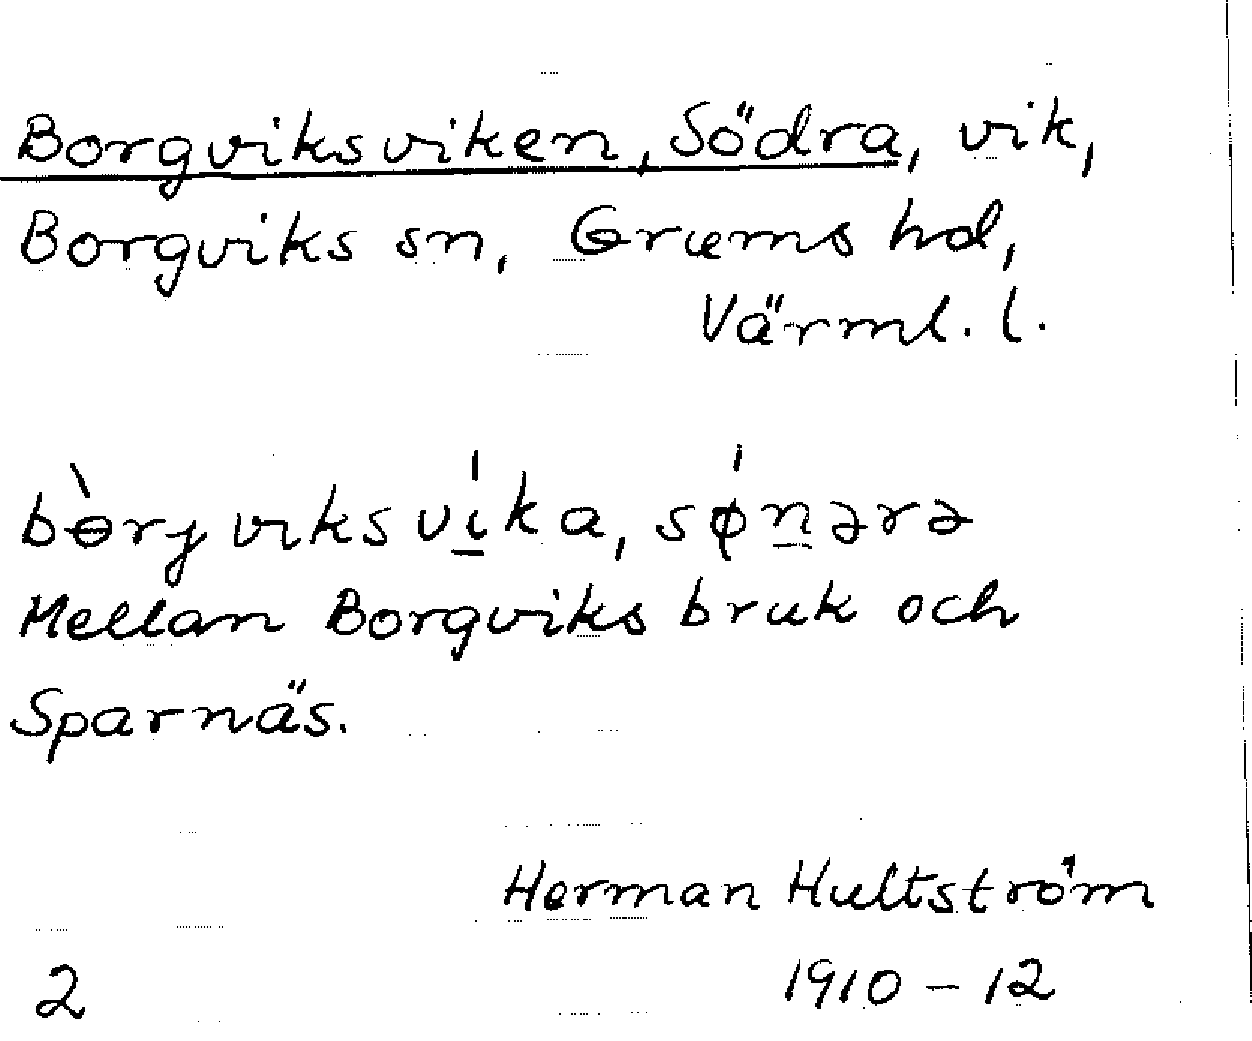 Borgviksviken, Södra, vik,
Borgviks sn, Grums hd,
Värml. l.
bɵ̀rj viksví̱ka, sǿṉərə
Mellan Borgviks bruk och
Sparnäs.
Herman Hultström
2 1910-12